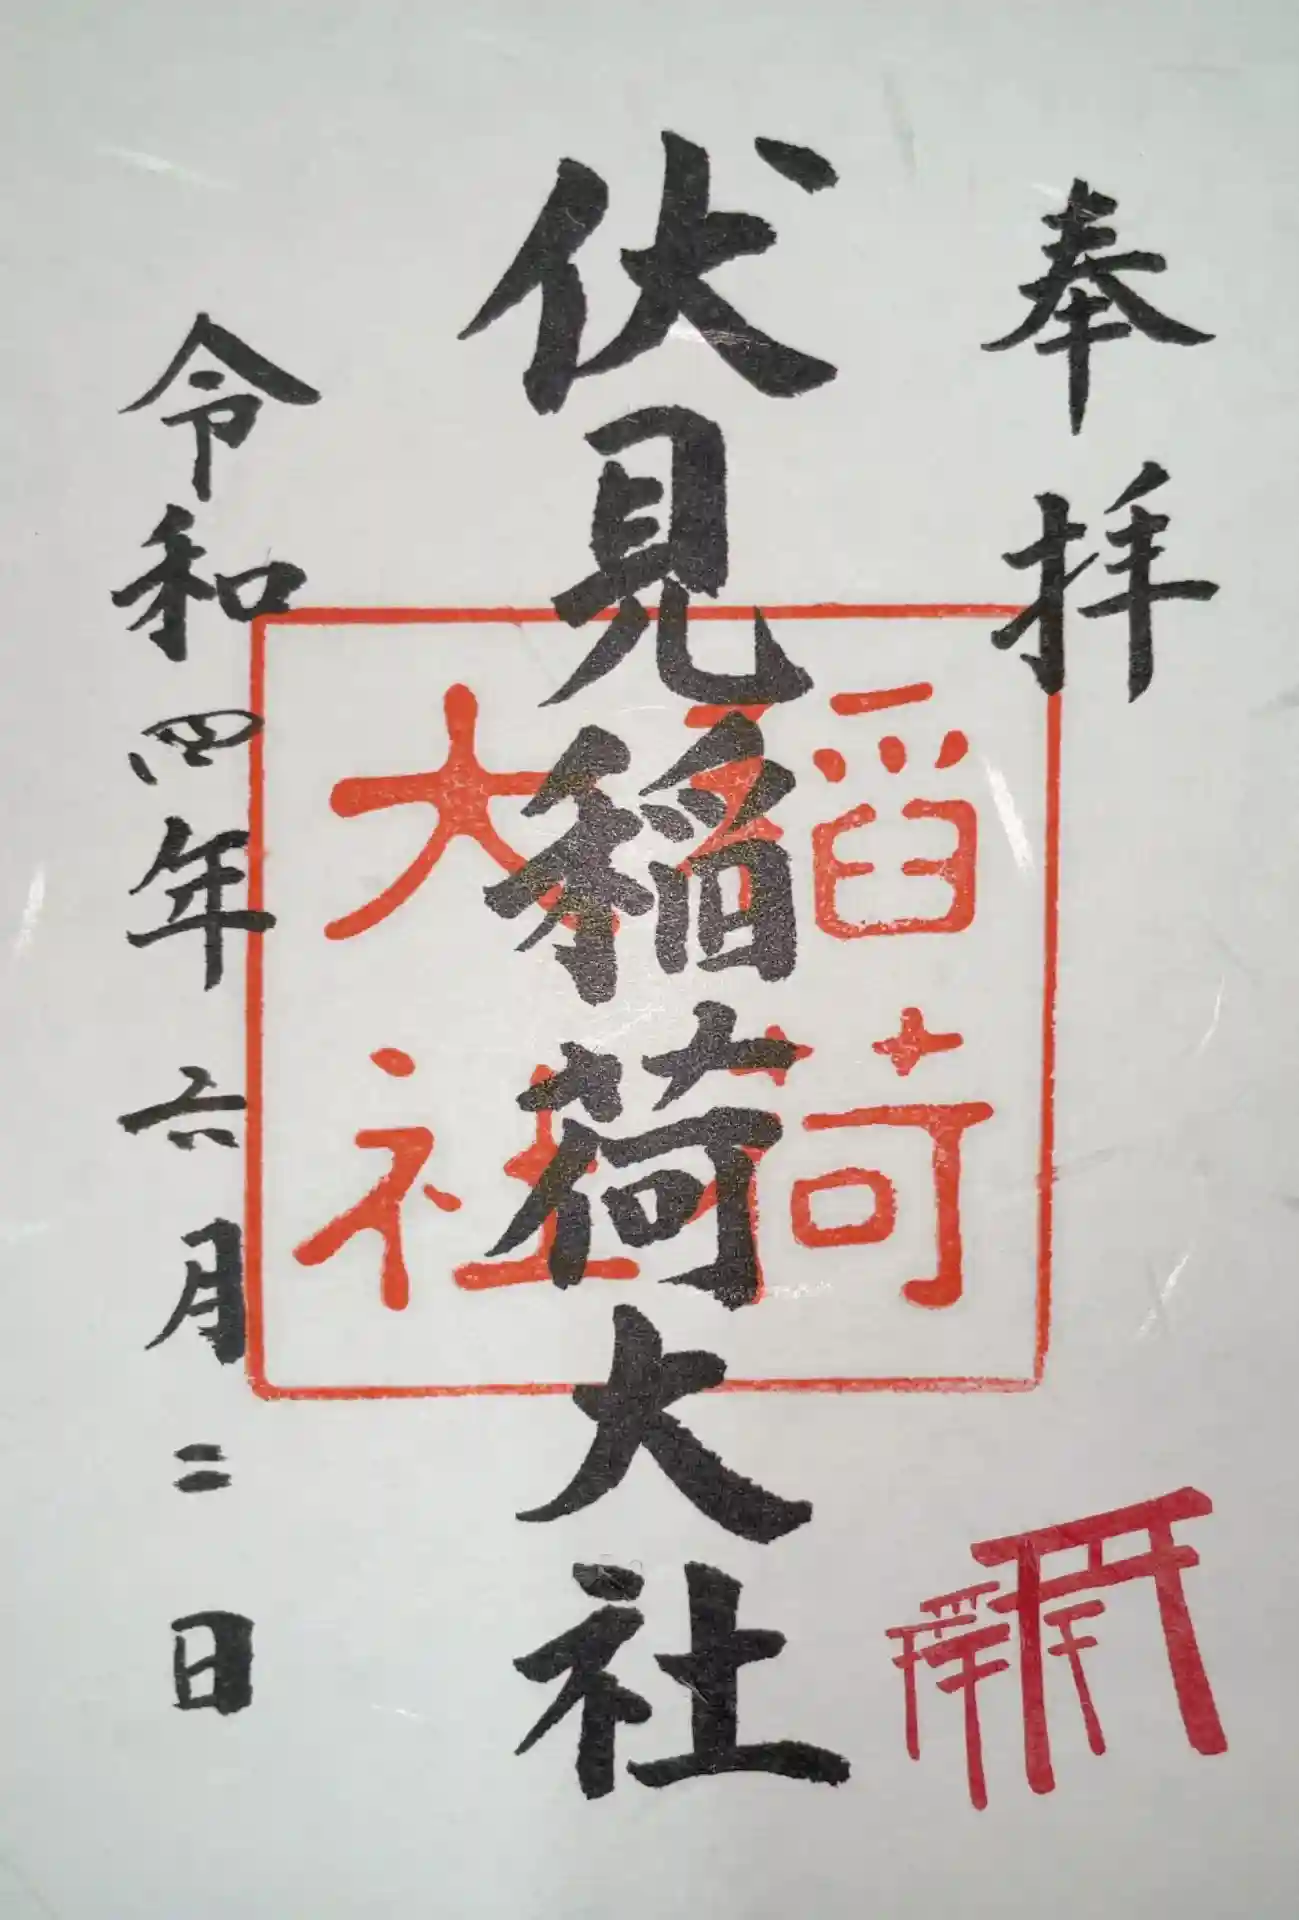 奉拝
伏見稲荷大社
稲荷
大社
令和四年六月二日